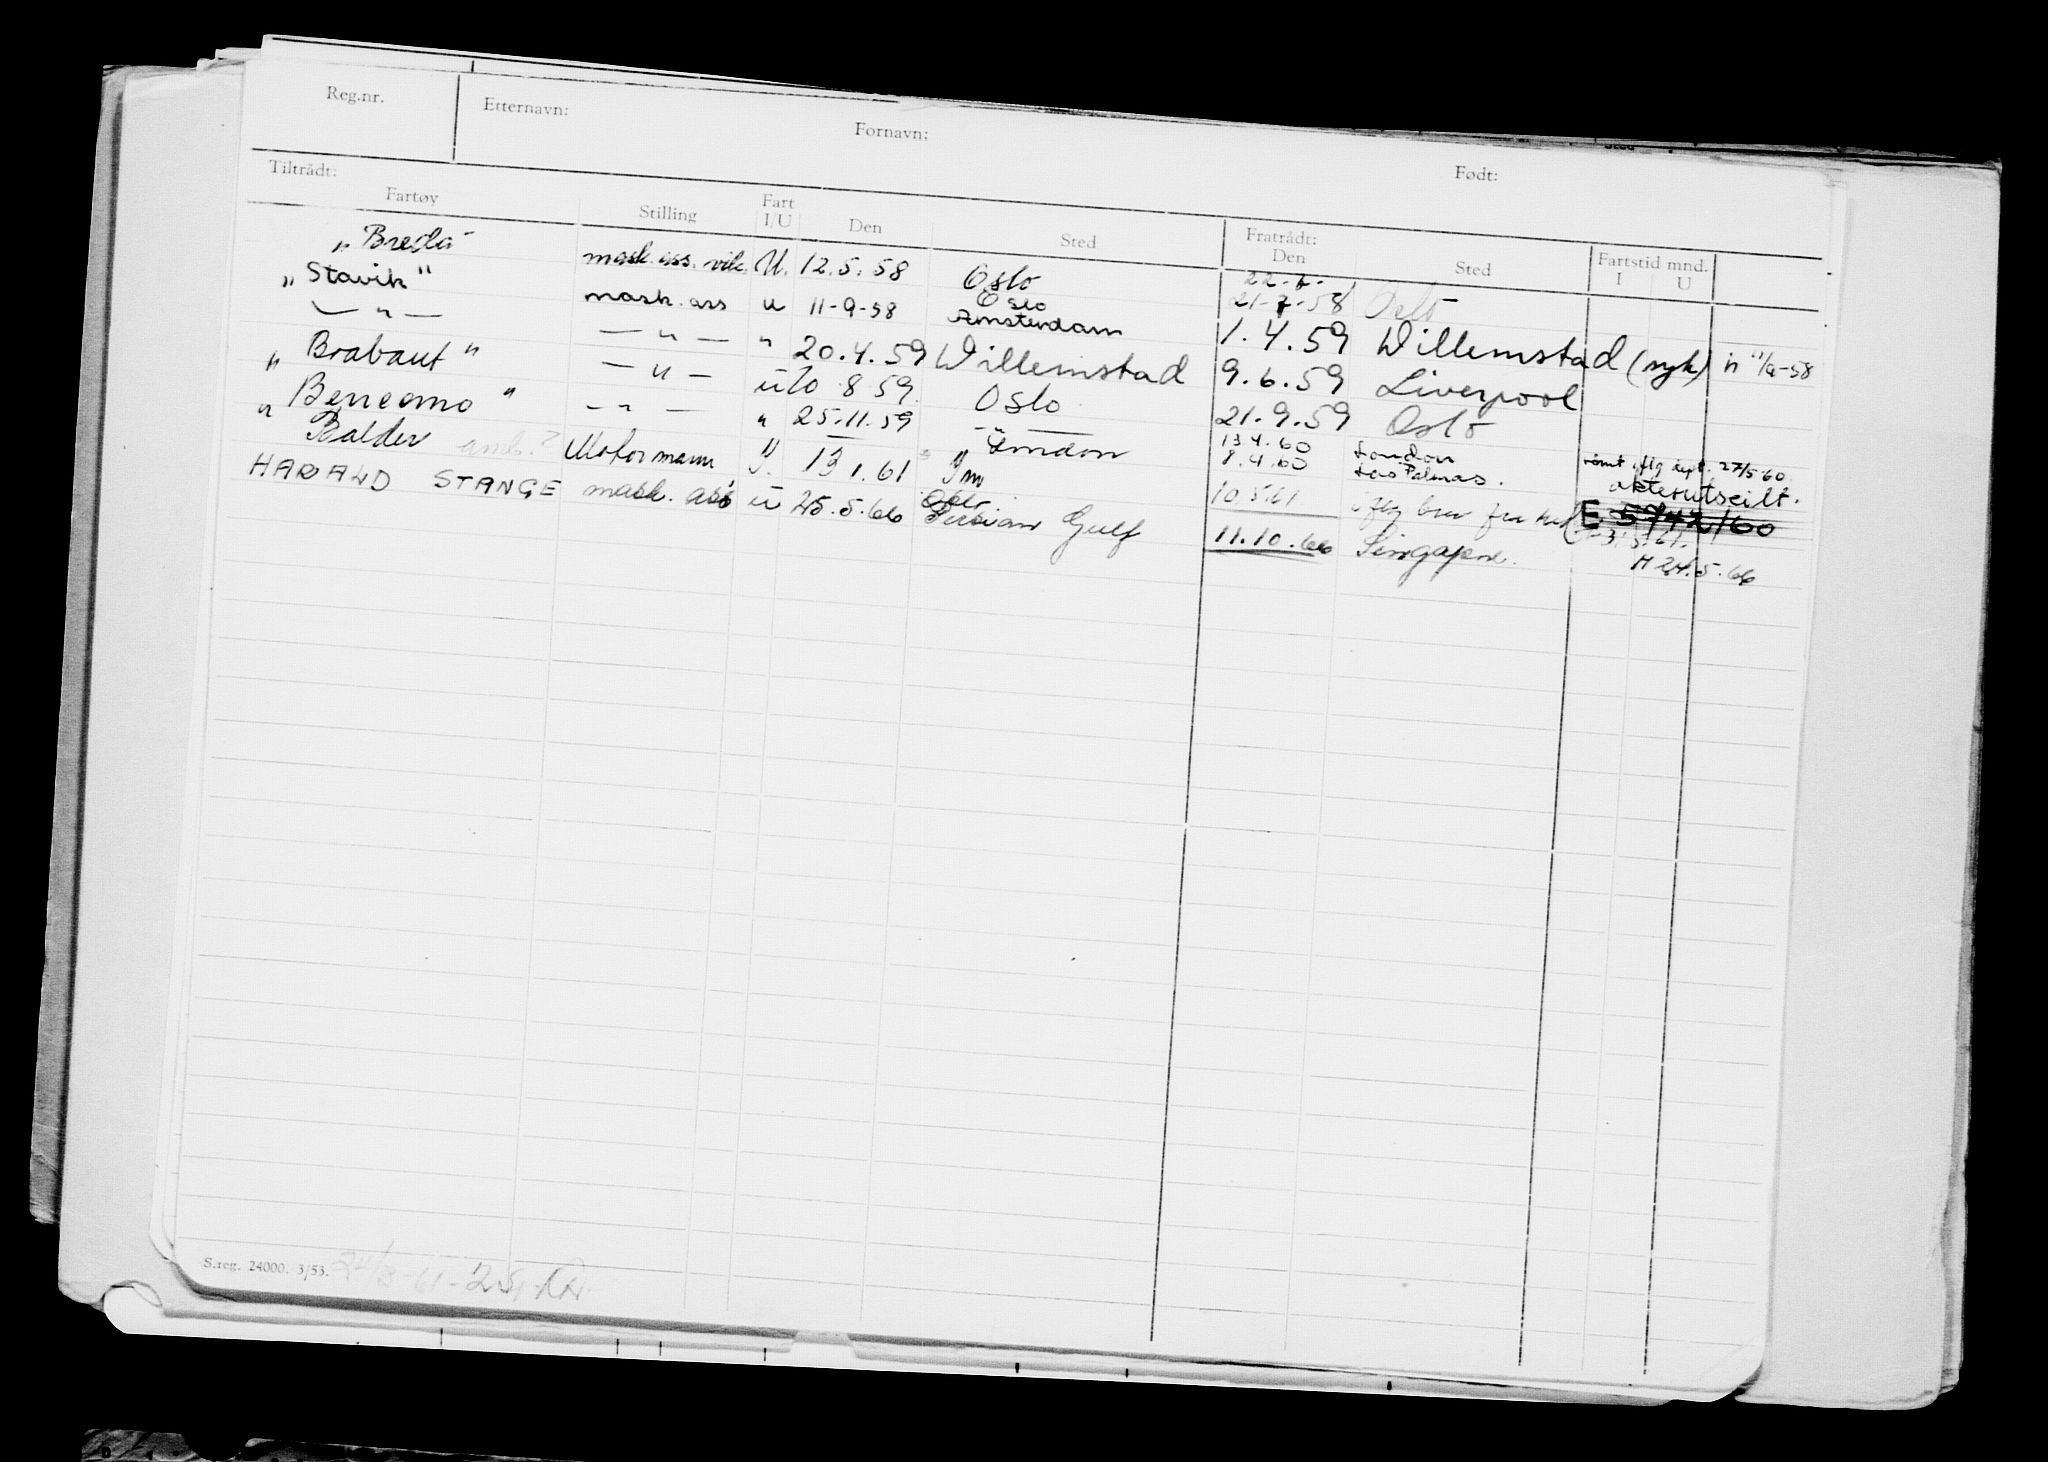 Reg.nr. Etternavn: Fornavn: Født:
Tiltrådt: Fratrådt: Fartstid mnd.
Fartøy Stilling Fart I/U Den Sted Den Sted I U
"Breda" mask. ass. vik. U. 12.5.58 Oslo 22.7. 21-7-58 Oslo
"Stavik" mask. ass u 11-9-58 Oslo Amsterdam 1.4.59 Willemstad (syk) n 11/9-58
— " — — " — " 20.4.59 Willemstad 9.6.59 Liverpool
"Brabant" — " — u 10 8 59. Oslo 21.9.59 Oslo
"Bencomo" — " — " 25.11.59 — " — 13.4.60 London rømt iflg rapt. 27/5-60
8.4.60 Las Palmas. akterutseilt.
" Balder Motormann 13 1.61 London 10 5 61 iflg brev fra E 5742/60
HARALD STANGE mask. ass u 25.5.66 Persian Gulf 11.10.66 Singapore. H 24.5.66
S.reg. 24000. 3/53.